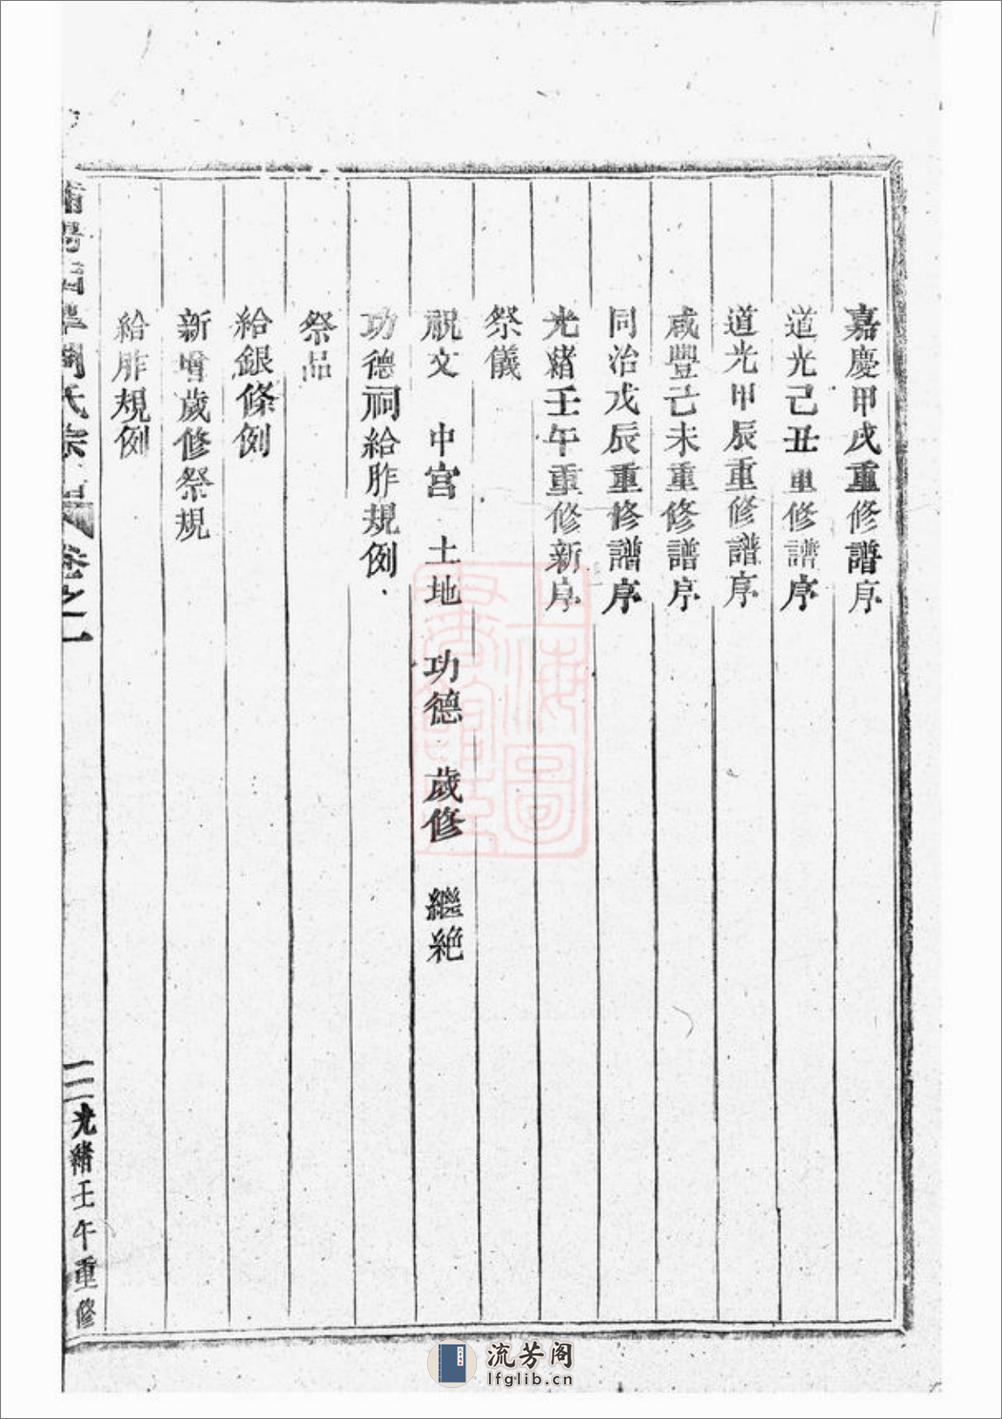 嘉慶甲戌重修譜序
道光己丑重修譜序
道光甲辰重修譜序
咸豐己未重修譜序
同治戊辰重修譜序
光緒壬午重修新序
祭儀
祝文 中宮 土地 功德 歲修 繼絶
功德祠給胙規例
祭品
給銀條例
新增歲修祭規
給胙規例
氏宗譜 卷之一
二 光緒壬午重修
上海圖書館藏
流芳阁
lfglib.cn